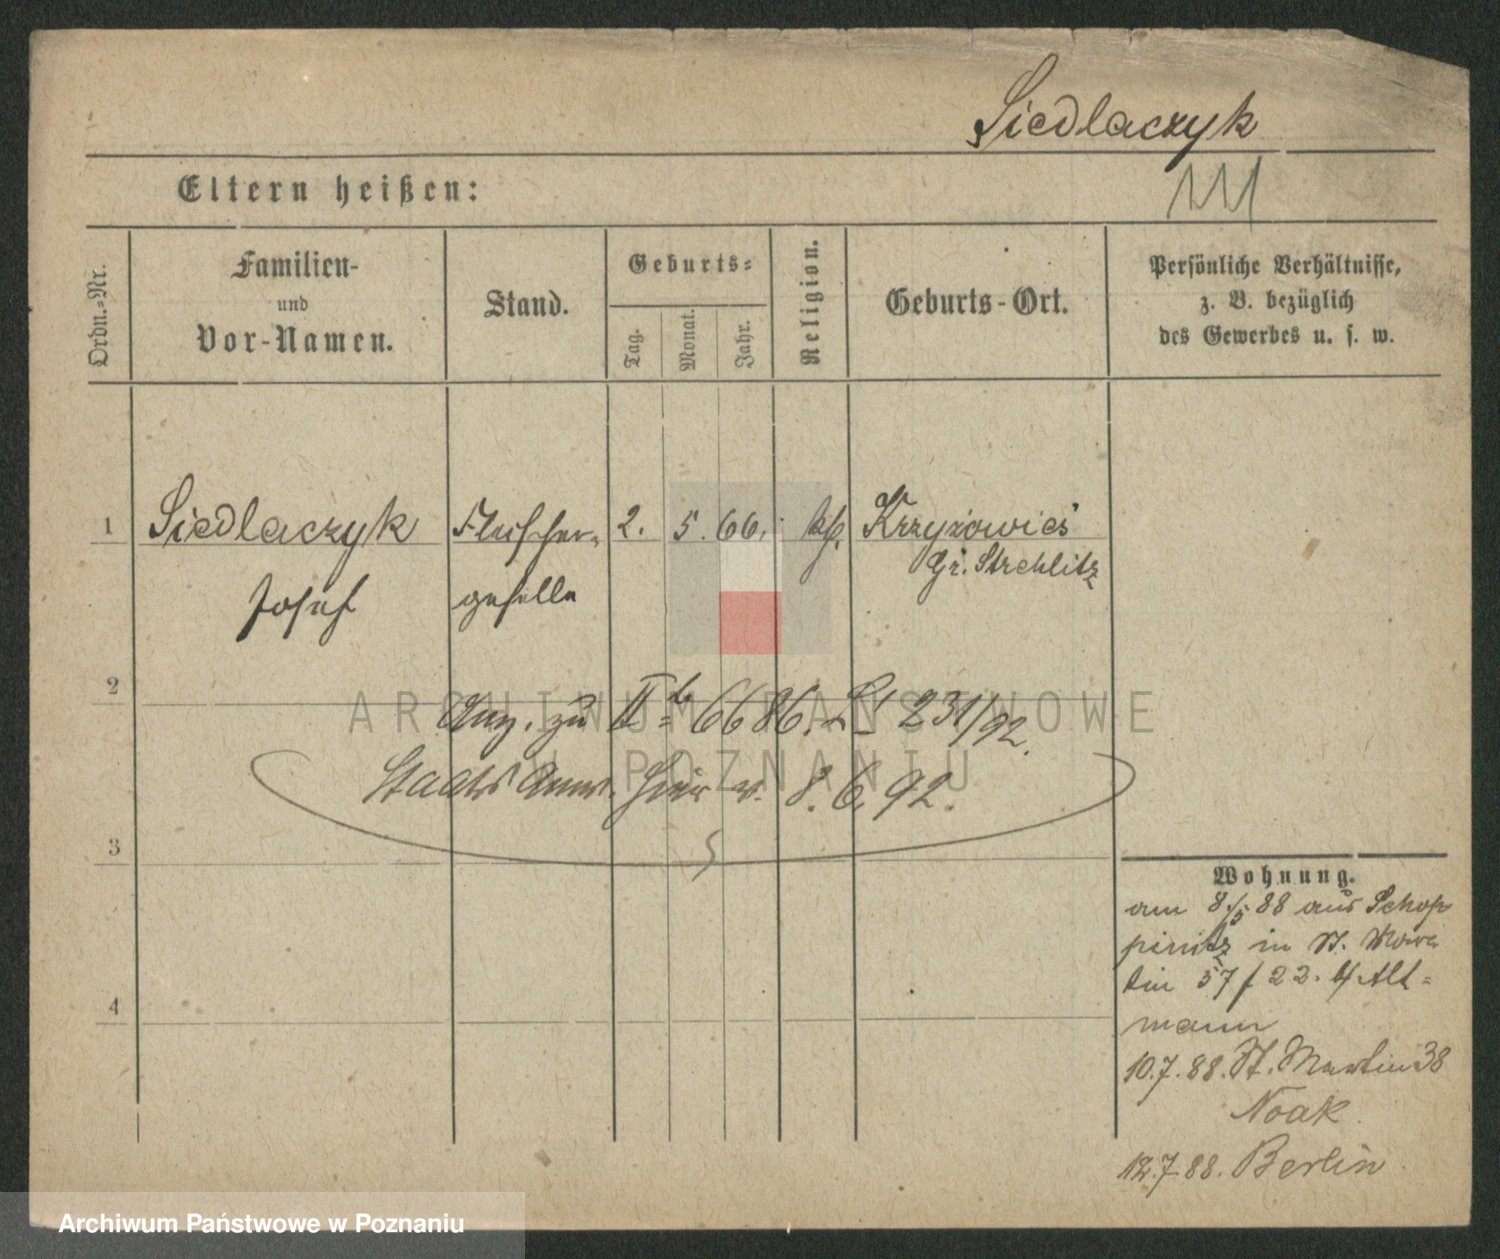 Siedlaczyk
Eltern heißen:
Ordn.-Nr.
Familien-
und
Vor-Namen.
Stand.
Geburts-
Tag.
Monat.
Jahr.
Religion.
Geburts-Ort.
Persönliche Verhältnisse,
z. B. bezüglich
des Gewerbes u. s. w.
1
Siedlaczyk
Josef
Fleischer-
geselle
2. 5. 66.
kth.
Krzyżowies
Gr. Strehlitz
2
Anz. zu II b 6686. 231/92.
Staats Anw. hier v. 8. 6. 92.
3
4
Wohnung.
am 8/5 88 aus Schop
pinitz in St. Mar
tin 57 / 22. b/ Alt-
mann
10.7.88. St. Martin 38
Noak
12.7.88. Berlin
ARCHIWUM PAŃSTWOWE
W POZNANIU
Archiwum Państwowe w Poznaniu